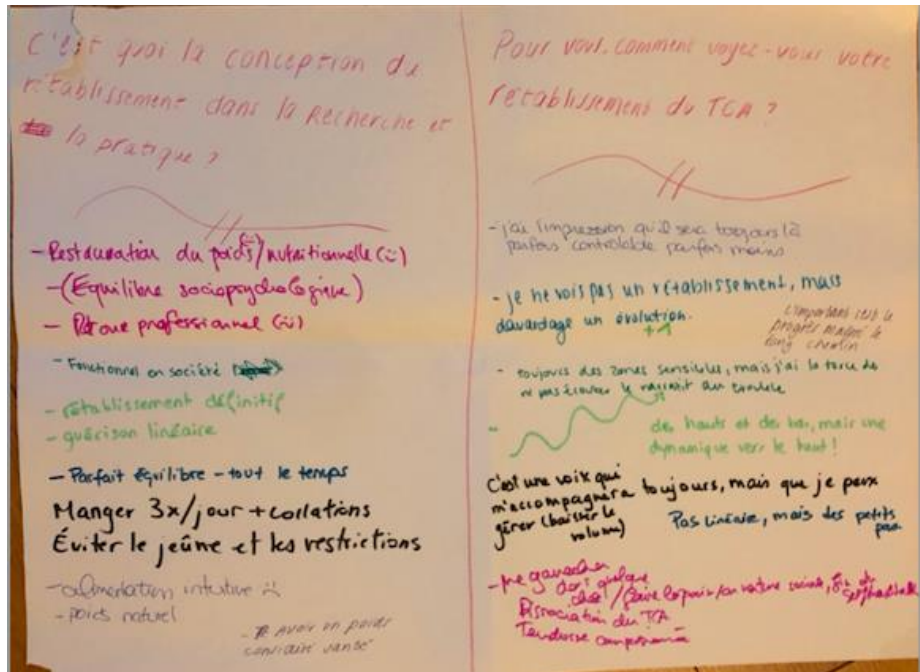 C'est quoi la conception du
rétablissement dans la Recherche et
la pratique ?
- Restauration du poids/nutritionnelle (ü)
- (Équilibre sociopsychologique)
- professionnel (ü)
- Fonctionnel en société
- rétablissement définitif
- guérison linéaire
- Parfait équilibre - tout le temps
Manger 3x/jour + collations
Éviter le jeûne et les restrictions
- alimentation intuitive
- poids naturel
- Avoir un poids
considéré
Pour vous, comment voyez-vous votre
rétablissement du TCA ?
- j'ai l'impression qu'il sera toujours là
parfois contrôlable parfois moins
- je ne vois pas un rétablissement, mais
davantage un évolution.
+1
L'important c'est le
progrès malgré le
long chemin
- toujours des zones sensibles, mais j'ai la force de
ne pas écouter le
des hauts et des bas, mais une
dynamique vers le haut !
C'est une voix qui
m'accompagnera toujours, mais que je peux
gérer (baisser le
volume)
Pas linéaire, mais des petits
pas
quelque
Dissociation du TCA
Tendresse